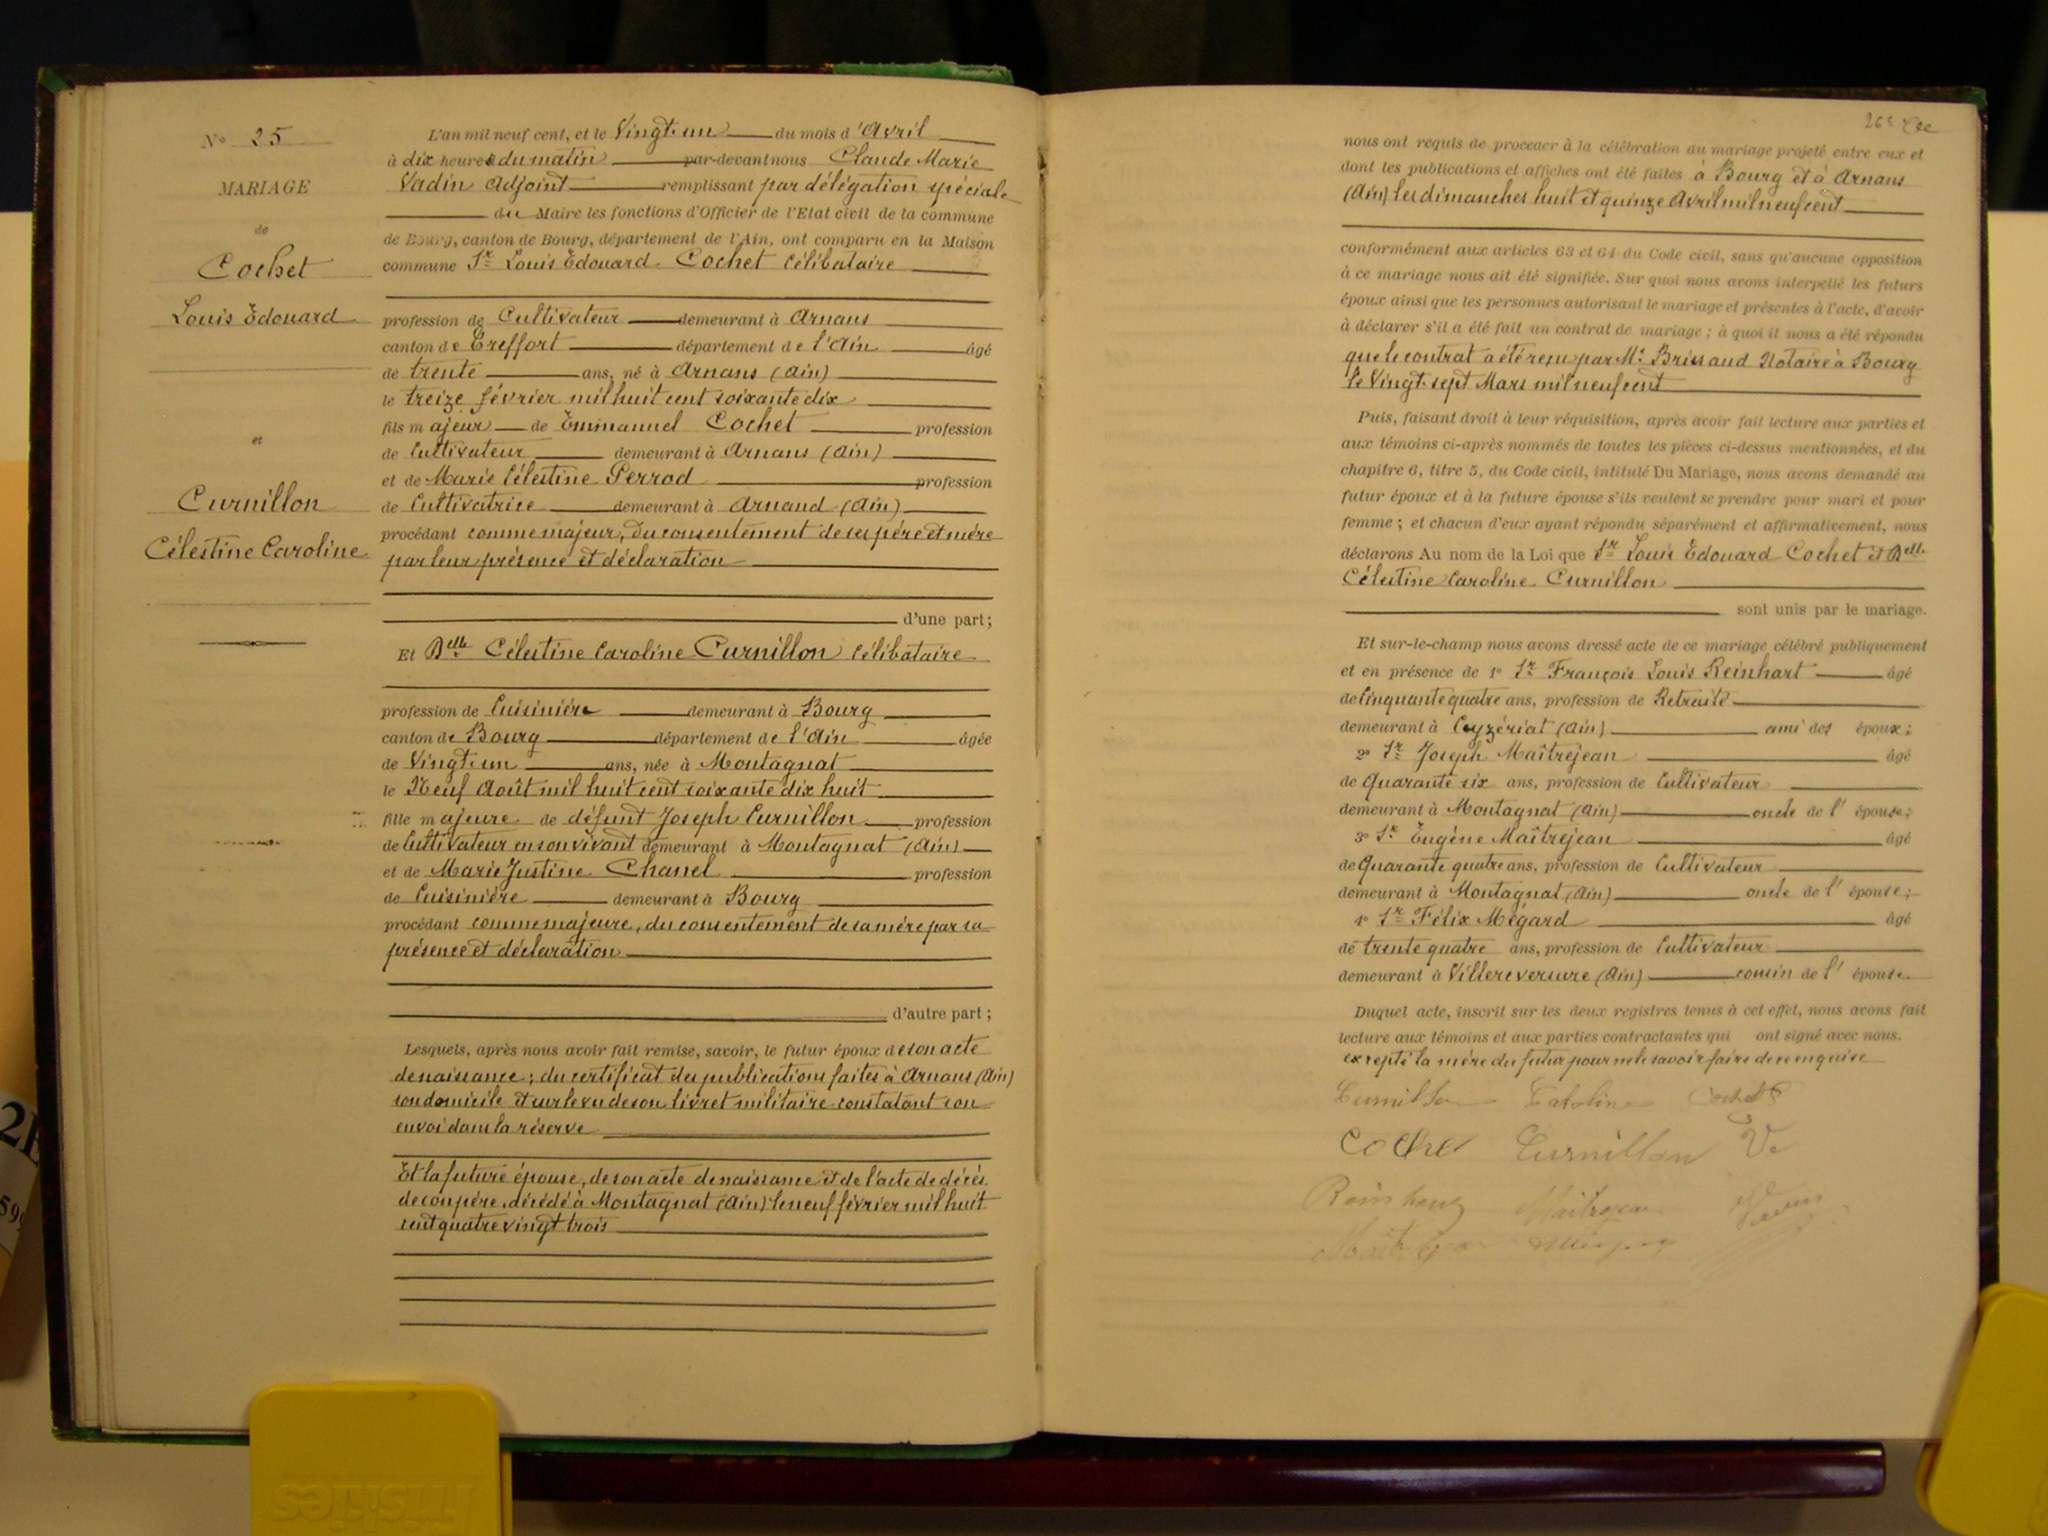 N° 25
MARIAGE
de
Cochet
Louis Edouard
et
Curnillon
Célestine Caroline
L'an mil neuf cent, et le Vingt un du mois d'Avril
à dix heures du matin par-devant nous Claude Marie
Vadin Adjoint remplissant par délégation spéciale
du Maire les fonctions d'Officier de l'Etat civil de la commune
de Bourg, canton de Bourg, département de l'Ain, ont comparu en la Maison
commune Sr Louis Edouard Cochet célibataire
profession de Cultivateur demeurant à Arnans
canton de Treffort département de l'Ain âgé
de trente ans, né à Arnans (Ain)
le treize février mil huit cent soixante dix
fils majeur de Emmanuel Cochet profession
de Cultivateur demeurant à Arnans (Ain)
et de Marie Célestine Perrod profession
de Cultivatrice demeurant à Arnand (Ain)
procédant comme majeur, du consentement de ses père et mère
par leur présence et déclaration
d'une part;
Et Delle Célestine Caroline Curnillon célibataire
profession de Cuisinière demeurant à Bourg
canton de Bourg département de l'Ain âgée
de Vingt un ans, née à Montagnat
le Neuf Août mil huit cent soixante dix huit
fille majeure de défunt Joseph Curnillon profession
de Cultivateur en son vivant demeurant à Montagnat (Ain)
et de Marie Justine Chanel profession
de Cuisinière demeurant à Bourg
procédant comme majeure, du consentement de sa mère par sa
présence et déclaration
d'autre part;
Lesquels, après nous avoir fait remise, savoir, le futur époux de son acte
de naissance; du certificat des publications faites à Arnans (Ain)
son domicile et sur le vu de son livret militaire constatant son
envoi dans la réserve
Et la future épouse, de son acte de naissance et de l'acte de décès
de son père, décédé à Montagnat (Ain) le neuf février mil huit
cent quatre vingt trois
nous ont requis de procéder à la célébration du mariage projeté entre eux et
dont les publications et affiches ont été faites à Bourg et à Arnans
(Ain) les dimanches huit et quinze Avril mil neuf cent
conformément aux articles 63 et 64 du Code civil, sans qu'aucune opposition
à ce mariage nous ait été signifiée. Sur quoi nous avons interpellé les futurs
époux ainsi que les personnes autorisant le mariage et présentes à l'acte, d'avoir
à déclarer s'il a été fait un contrat de mariage; à quoi il nous a été répondu
que le contrat a été reçu par Me Brissand Notaire à Bourg
le Vingt sept Mars mil neuf cent
Puis, faisant droit à leur réquisition, après avoir fait lecture aux parties et
aux témoins ci-après nommés de toutes les pièces ci-dessus mentionnées, et du
chapitre 6, titre 5, du Code civil, intitulé Du Mariage, nous avons demandé au
futur époux et à la future épouse s'ils veulent se prendre pour mari et pour
femme; et chacun d'eux ayant répondu séparément et affirmativement, nous
déclarons Au nom de la Loi que Sr Louis Edouard Cochet et Delle
Célestine Caroline Curnillon
sont unis par le mariage.
Et sur-le-champ nous avons dressé acte de ce mariage célébré publiquement
et en présence de 1° Sr François Louis Reinhart âgé
de Cinquante quatre ans, profession de Retraité
demeurant à Ceyzériat (Ain) ami des époux;
2° Sr Joseph Maîtrejean âgé
de Quarante six ans, profession de Cultivateur
demeurant à Montagnat (Ain) oncle de l'épouse;
3° Sr Eugène Maîtrejean âgé
de Quarante quatre ans, profession de Cultivateur
demeurant à Montagnat (Ain) oncle de l'épouse;
4° Sr Félix Mégard âgé
de trente quatre ans, profession de Cultivateur
demeurant à Villereversure (Ain) cousin de l'épouse.
Duquel acte, inscrit sur les deux registres tenus à cet effet, nous avons fait
lecture aux témoins et aux parties contractantes qui ont signé avec nous.
excepté la mère du futur pour ne le savoir faire de ce enquise
Curnillon Caroline Cochet
Cochet Curnillon Ve
Reinhart Maîtrejean Vadin